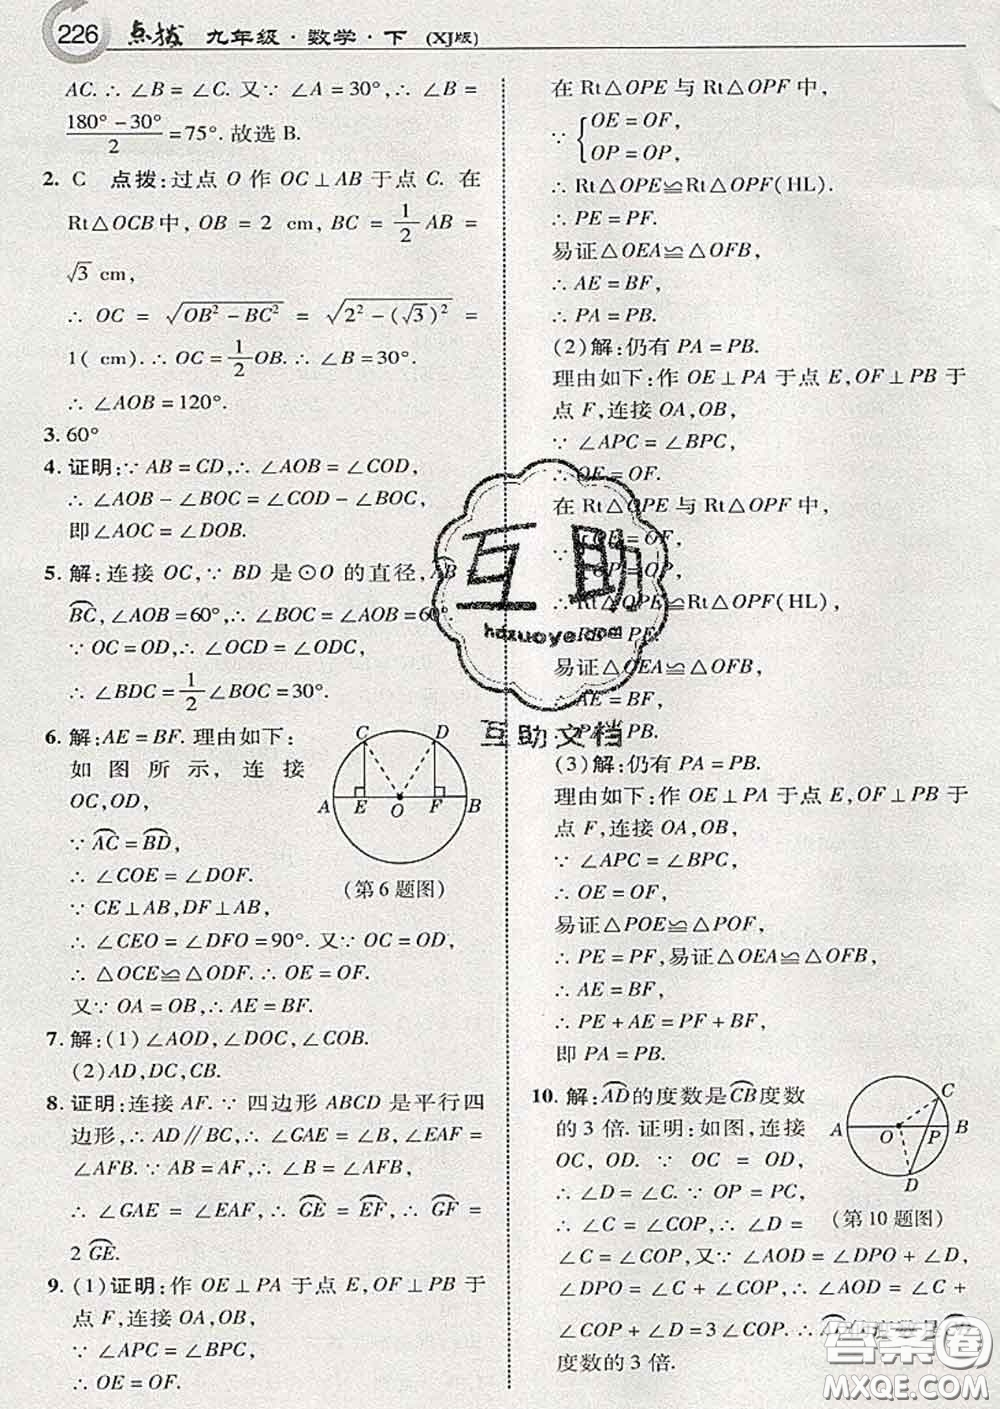 226 点拨 九年级·数学·下 (XJ版)
AC.∴∠B=∠C.又∵∠A=30°,∴∠B=
(180°-30°)/2=75°.故选B.
2. C 点拨:过点O作OC⊥AB于点C.在
Rt△OCB中,OB=2 cm,BC=1/2AB=
√3 cm,
∴OC=√(OB²-BC²)=√(2²-(√3)²)=
1(cm).∴OC=1/2OB.∴∠B=30°.
∴∠AOB=120°.
3. 60°
4. 证明:∵AB=CD,∴∠AOB=∠COD,
∴∠AOB-∠BOC=∠COD-∠BOC,
即∠AOC=∠DOB.
5. 解:连接OC,∵BD是⊙O的直径,AB=
BC,∠AOB=60°,∴∠BOC=∠AOB=60°.
∵OC=OD,∴∠OCD=∠ODC.
∴∠BDC=1/2∠BOC=30°.
6. 解:AE=BF.理由如下:
如图所示,连接
OC,OD,
∵AC=BD,
∴∠COE=∠DOF.
∵CE⊥AB,DF⊥AB,
∴∠CEO=∠DFO=90°.又∵OC=OD,
∴△OCE≌△ODF.∴OE=OF.
又∵OA=OB,∴AE=BF.
C D
A E O F B
(第6题图)
7. 解:(1)∠AOD,∠DOC,∠COB.
(2)AD,DC,CB.
8. 证明:连接AF.∵四边形ABCD是平行四
边形,∴AD∥BC,∴∠GAE=∠B,∠EAF=
∠AFB.∵AB=AF,∴∠B=∠AFB,
∴∠GAE=∠EAF,∴GE=EF,∴GF=
2GE.
9. (1)证明:作OE⊥PA于点E,OF⊥PB于
点F,连接OA,OB,
∵∠APC=∠BPC,
∴OE=OF.
在Rt△OPE与Rt△OPF中,
∵{OE=OF,
OP=OP,
∴Rt△OPE≌Rt△OPF(HL).
∴PE=PF.
易证△OEA≌△OFB,
∴AE=BF,
∴PA=PB.
(2)解:仍有PA=PB.
理由如下:作OE⊥PA于点E,OF⊥PB于
点F,连接OA,OB,
∵∠APC=∠BPC,
∴OE=OF.
在Rt△OPE与Rt△OPF中,
OE=OF,
OP=OP,
∴Rt△OPE≌Rt△OPF(HL),
PE.
易证△OEA≌△OFB,
∴AE=BF,
PB.
(3)解:仍有PA=PB.
理由如下:作OE⊥PA于点E,OF⊥PB于
点F,连接OA,OB,
∵∠APC=∠BPC,
∴OE=OF.
易证△POE≌△POF,
∴PE=PF,易证△OEA≌△OFB,
∴AE=BF,
∴PE+AE=PF+BF,
即PA=PB.
10. 解:AD的度数是CB度数
的3倍.证明:如图,连接
OC,OD.∵OC=OD,
∴∠C=∠D.∵OP=PC,
∴∠C=∠COP,∴∠D=
∠C=∠COP,又∵∠AOD=∠DPO+∠D,
∠DPO=∠C+∠COP,∴∠AOD=∠C+
∠COP+∠D=3∠COP.∴AD的度数是CB
度数的3倍.
C
A O P B
D
(第10题图)
互助
hdzuoye.com
互助文档
答案圈
MXQE.COM